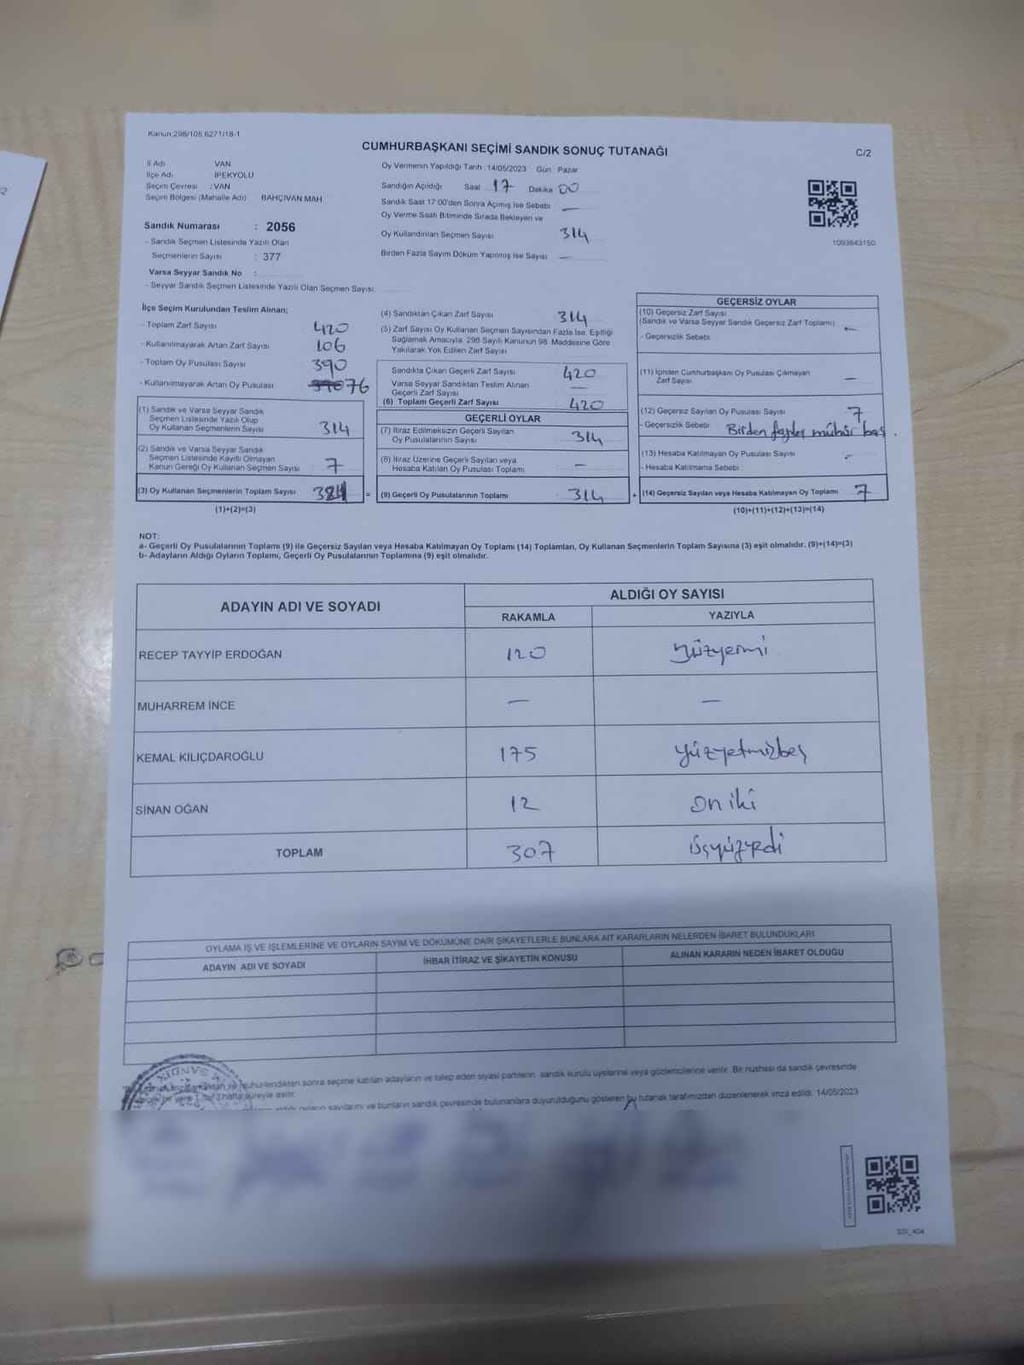 Kanun:298/105,6271/18-1
CUMHURBAŞKANI SEÇİMİ SANDIK SONUÇ TUTANAĞI
C/2
İl Adı VAN
İlçe Adı İPEKYOLU
Seçim Çevresi : VAN
Seçim Bölgesi (Mahalle Adı) BAHÇIVAN MAH
Oy Vermenin Yapıldığı Tarih : 14/05/2023 Gün Pazar
Sandığın Açıldığı Saat 17 Dakika 00
Sandık Saat 17:00'den Sonra Açılmış İse Sebebi —
Oy Verme Saati Bitiminde Sırada Bekleyen ve
Oy Kullandırılan Seçmen Sayısı 314
Birden Fazla Sayım Döküm Yapılmış İse Sayısı —
1093643150
Sandık Numarası : 2056
- Sandık Seçmen Listesinde Yazılı Olan
Seçmenlerin Sayısı : 377
Varsa Seyyar Sandık No :
- Seyyar Sandık Seçmen Listesinde Yazılı Olan Seçmen Sayısı:
İlçe Seçim Kurulundan Teslim Alınan;
- Toplam Zarf Sayısı 420
- Kullanılmayarak Artan Zarf Sayısı 106
- Toplam Oy Pusulası Sayısı 390
- Kullanılmayarak Artan Oy Pusulası 76
(1) Sandık ve Varsa Seyyar Sandık
Seçmen Listesinde Yazılı Olup
Oy Kullanan Seçmenlerin Sayısı 314
(2) Sandık ve Varsa Seyyar Sandık
Seçmen Listesinde Kayıtlı Olmayan
Kanun Gereği Oy Kullanan Seçmen Sayısı 7
(3) Oy Kullanan Seçmenlerin Toplam Sayısı =
(1)+(2)=(3)
(4) Sandıktan Çıkan Zarf Sayısı 314
(5) Zarf Sayısı Oy Kullanan Seçmen Sayısından Fazla İse, Eşitliği
Sağlamak Amacıyla, 298 Sayılı Kanunun 98. Maddesine Göre
Yakılarak Yok Edilen Zarf Sayısı
Sandıkta Çıkan Geçerli Zarf Sayısı 420
Varsa Seyyar Sandıktan Teslim Alınan
Geçerli Zarf Sayısı —
(6) Toplam Geçerli Zarf Sayısı 420
GEÇERLİ OYLAR
(7) İtiraz Edilmeksizin Geçerli Sayılan
Oy Pusulalarının Sayısı 314
(8) İtiraz Üzerine Geçerli Sayılan veya
Hesaba Katılan Oy Pusulası Toplamı —
(9) Geçerli Oy Pusulalarının Toplamı 314 +
GEÇERSİZ OYLAR
(10) Geçersiz Zarf Sayısı
(Sandık ve Varsa Seyyar Sandık Geçersiz Zarf Toplamı) —
- Geçersizlik Sebebi:
(11) İçinden Cumhurbaşkanı Oy Pusulası Çıkmayan
Zarf Sayısı —
(12) Geçersiz Sayılan Oy Pusulası Sayısı 7
- Geçersizlik Sebebi: Birden fazla mühür
(13) Hesaba Katılmayan Oy Pusulası Sayısı —
- Hesaba Katılmama Sebebi :
(14) Geçersiz Sayılan veya Hesaba Katılmayan Oy Toplamı 7
(10)+(11)+(12)+(13)=(14)
NOT:
a- Geçerli Oy Pusulalarının Toplamı (9) ile Geçersiz Sayılan veya Hesaba Katılmayan Oy Toplamı (14) Toplamları, Oy Kullanan Seçmenlerin Toplam Sayısına (3) eşit olmalıdır. (9)+(14)=(3)
b- Adayların Aldığı Oyların Toplamı, Geçerli Oy Pusulalarının Toplamına (9) eşit olmalıdır.
ADAYIN ADI VE SOYADI ALDIĞI OY SAYISI
RAKAMLA YAZIYLA
RECEP TAYYİP ERDOĞAN 120 yüzyermi
MUHARREM İNCE — —
KEMAL KILIÇDAROĞLU 175 yüzyetmizbeş
SİNAN OĞAN 12 on iki
TOPLAM 307 üçyüzyedi
OYLAMA İŞ VE İŞLEMLERİNE VE OYLARIN SAYIM VE DÖKÜMÜNE DAİR ŞİKAYETLERLE BUNLARA AİT KARARLARIN NELERDEN İBARET BULUNDUKLARI
ADAYIN ADI VE SOYADI İHBAR İTİRAZ VE ŞİKAYETİN KONUSU ALINAN KARARIN NEDEN İBARET OLDUĞU
sonra seçime katılan adayların ve talep eden siyasi partilerin sandık kurulu üyelerine veya gözlemcilerine verilir. Bir nüshası da sandık çevresinde
hafta süreyle asılır.
sayılarını ve bunların sandık çevresinde bulunanlara duyurulduğunu gösteren bu tutanak tarafımızdan düzenlenerek imza edildi. 14/05/2023